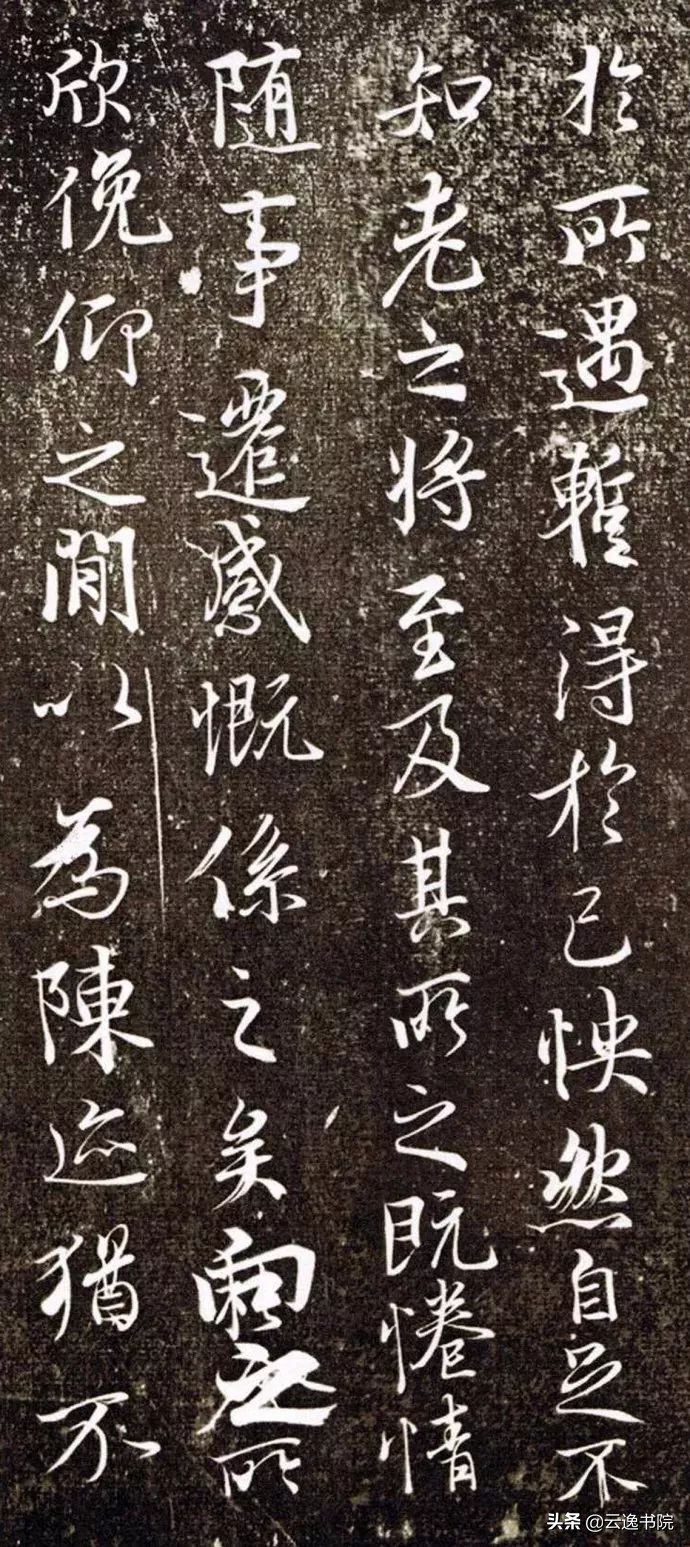 於所遇蹔得於己怏然自足不
知老之将至及其所之既惓情
随事遷感慨係之矣向之所
欣俛仰之閒以為陳迹猶不
头条 @云逸书院